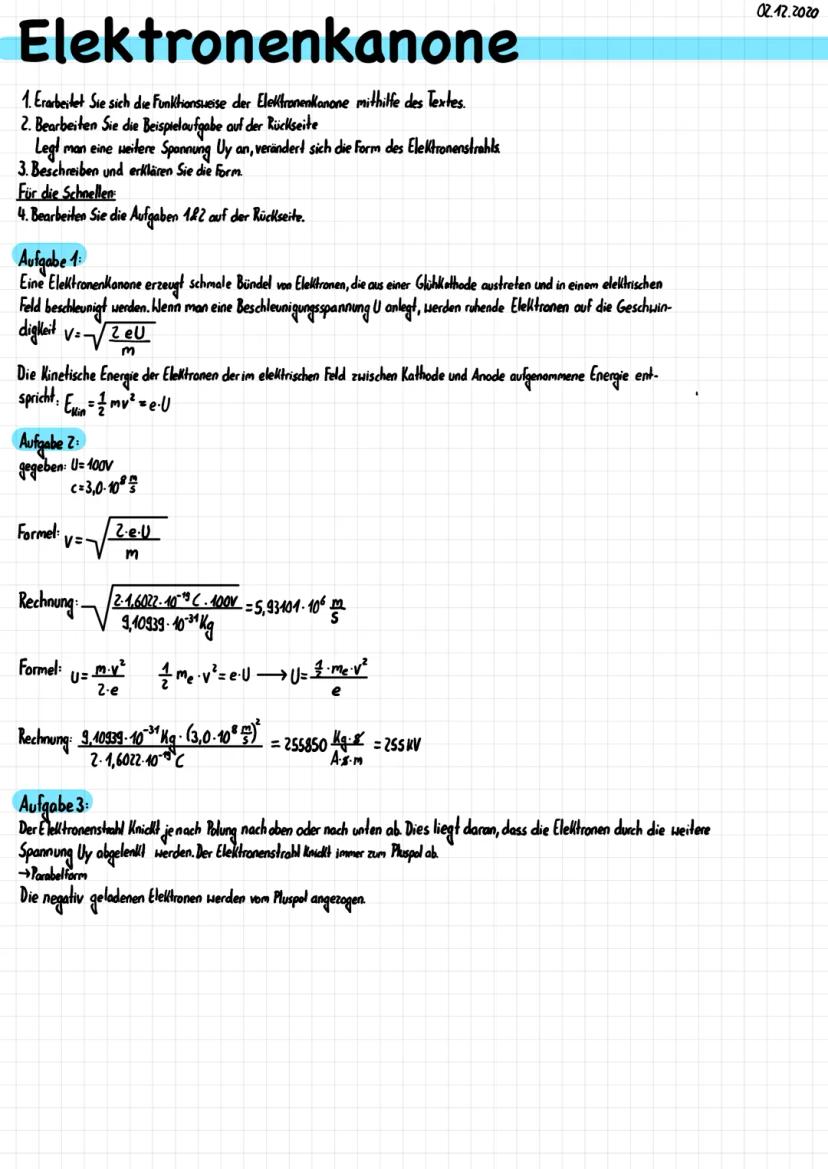 02.12.2020
Elektronenkanone
1. Erarbeitet Sie sich die Funktionsweise der Elektronenkanone mithilfe des Textes.
2. Bearbeiten Sie die Beispielaufgabe auf der Rückseite
Legt man eine weitere Spannung Uy an, verändert sich die Form des Elektronenstrahls.
3. Beschreiben und erklären Sie die Form.
Für die Schnellen:
4. Bearbeiten Sie die Aufgaben 1&2 auf der Rückseite.
Aufgabe 1:
Eine Elektronenkanone erzeugt schmale Bündel von Elektronen, die aus einer Glühkathode austreten und in einem elektrischen
Feld beschleunigt werden. Wenn man eine Beschleunigungsspannung U anlegt, werden ruhende Elektronen auf die Geschwin-
digkeit v = √(2 eU / m)
Die Kinetische Energie der Elektronen der im elektrischen Feld zwischen Kathode und Anode aufgenommene Energie ent-
spricht: E_Kin = 1/2 mv² = e·U
Aufgabe 2:
gegeben: U = 100V
c = 3,0·10⁸ m/s
Formel: v = √(2·e·U / m)
Rechnung: √(2·1,6022·10⁻¹⁹ C · 100V / 9,10939·10⁻³¹ Kg) = 5,93101·10⁶ m/s
Formel: U = m·v² / 2·e 1/2 mₑ·v² = e·U → U = 1/2·mₑ·v² / e
Rechnung: 9,10939·10⁻³¹ Kg · (3,0·10⁸ m/s)² / 2·1,6022·10⁻¹⁹ C = 255850 Kg·s / A·s·m = 255 kV
Aufgabe 3:
Der Elektronenstrahl Knickt je nach Polung nach oben oder nach unten ab. Dies liegt daran, dass die Elektronen durch die weitere
Spannung Uy abgelenkt werden. Der Elektronenstrahl knickt immer zum Pluspol ab.
→ Parabelform
Die negativ geladenen Elektronen werden vom Pluspol angezogen.